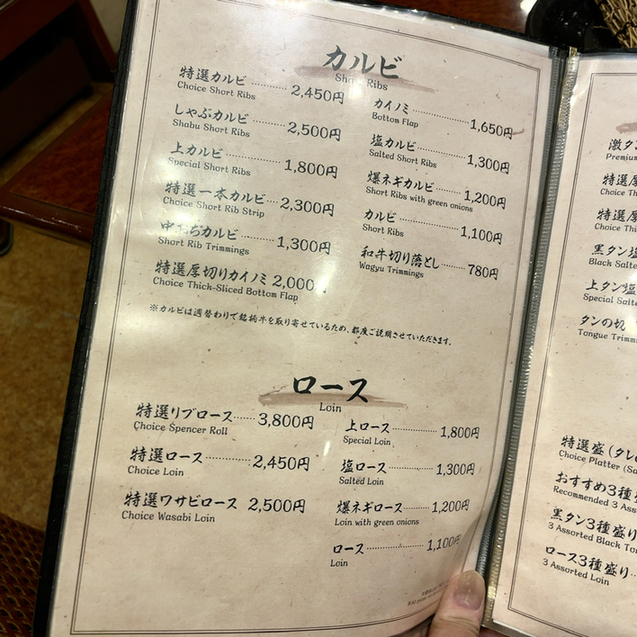 カルビ
Short Ribs
特選カルビ 2,450円
Choice Short Ribs
しゃぶカルビ 2,500円
Shabu Short Ribs
上カルビ 1,800円
Special Short Ribs
特選一本カルビ 2,300円
Choice Short Rib Strip
中おちカルビ 1,300円
Short Rib Trimmings
特選厚切りカイノミ 2,000
Choice Thick-Sliced Bottom Flap
カイノミ 1,650円
Bottom Flap
塩カルビ 1,300円
Salted Short Ribs
爆ネギカルビ 1,200円
Short Ribs with green onions
カルビ 1,100円
Short Ribs
和牛切り落とし 780円
Wagyu Trimmings
※カルビは週替わりで銘柄牛を取り寄せているため、都度ご説明させていただきます。
ロース
Loin
特選リブロース 3,800円
Choice Spencer Roll
特選ロース 2,450円
Choice Loin
特選ワサビロース 2,500円
Choice Wasabi Loin
上ロース 1,800円
Special Loin
塩ロース 1,300円
Salted Loin
爆ネギロース 1,200円
Loin with green onions
ロース 1,100円
Loin
激タン
Premium
特選厚
Choice Th
特選厚
Choice Thi
黒タン塩
Black Salte
上タン塩
Special Salte
タンの切
Tongue Trimm
特選盛(タレ
Choice Platter (Sa
おすすめ3種
Recommended 3 Ass
黒タン3種盛り
3 Assorted Black To
ロース3種盛り
3 Assorted Loin